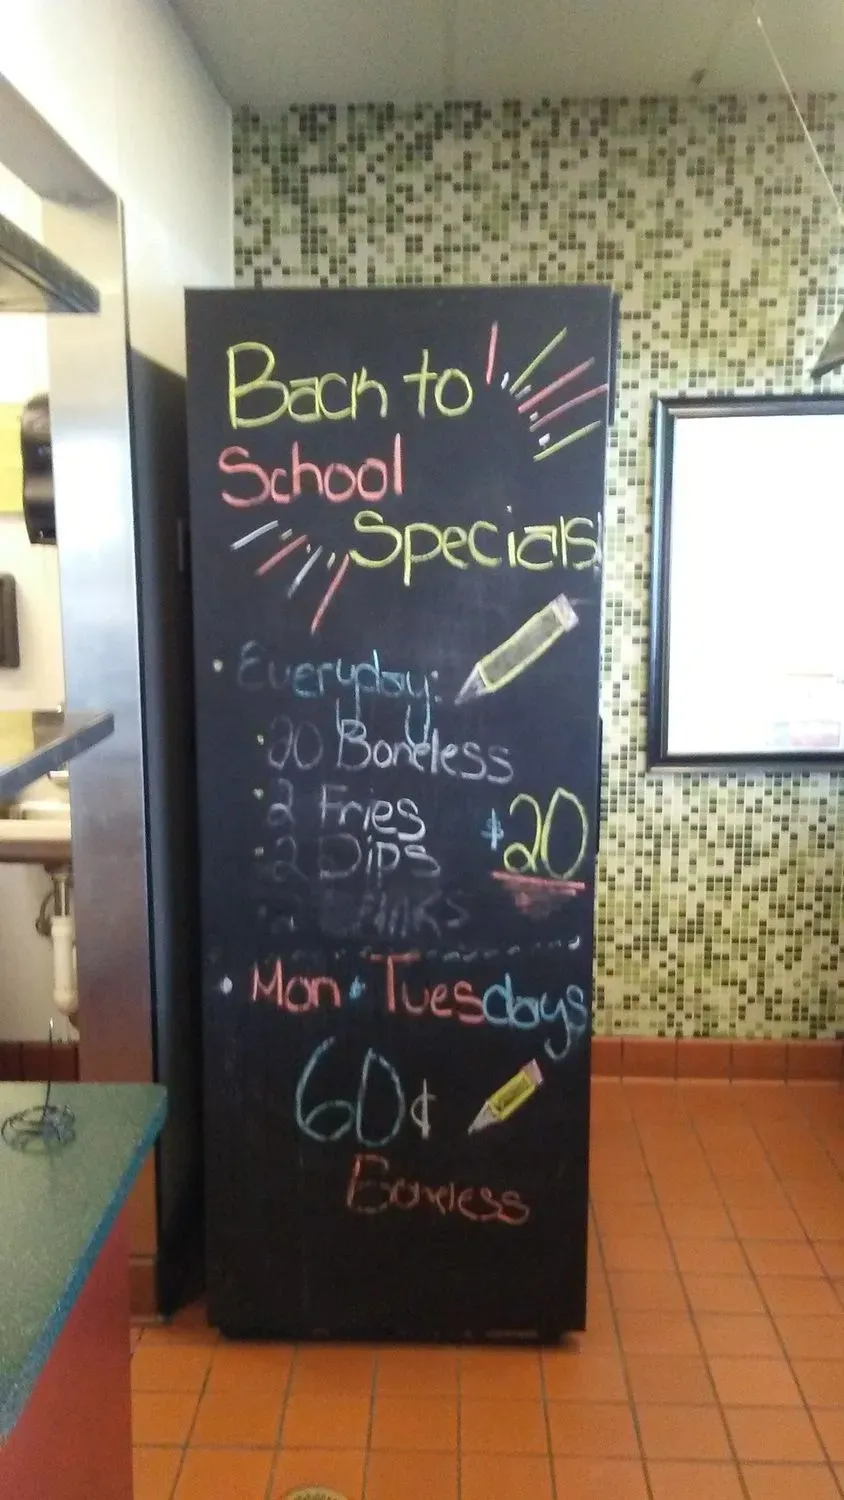 Back to
School
Specials!
• Everyday:
• 20 Boneless
• 2 Fries
• 2 Dips
$20
• 2 Drinks
• Mon • Tuesdays
60¢
Boneless